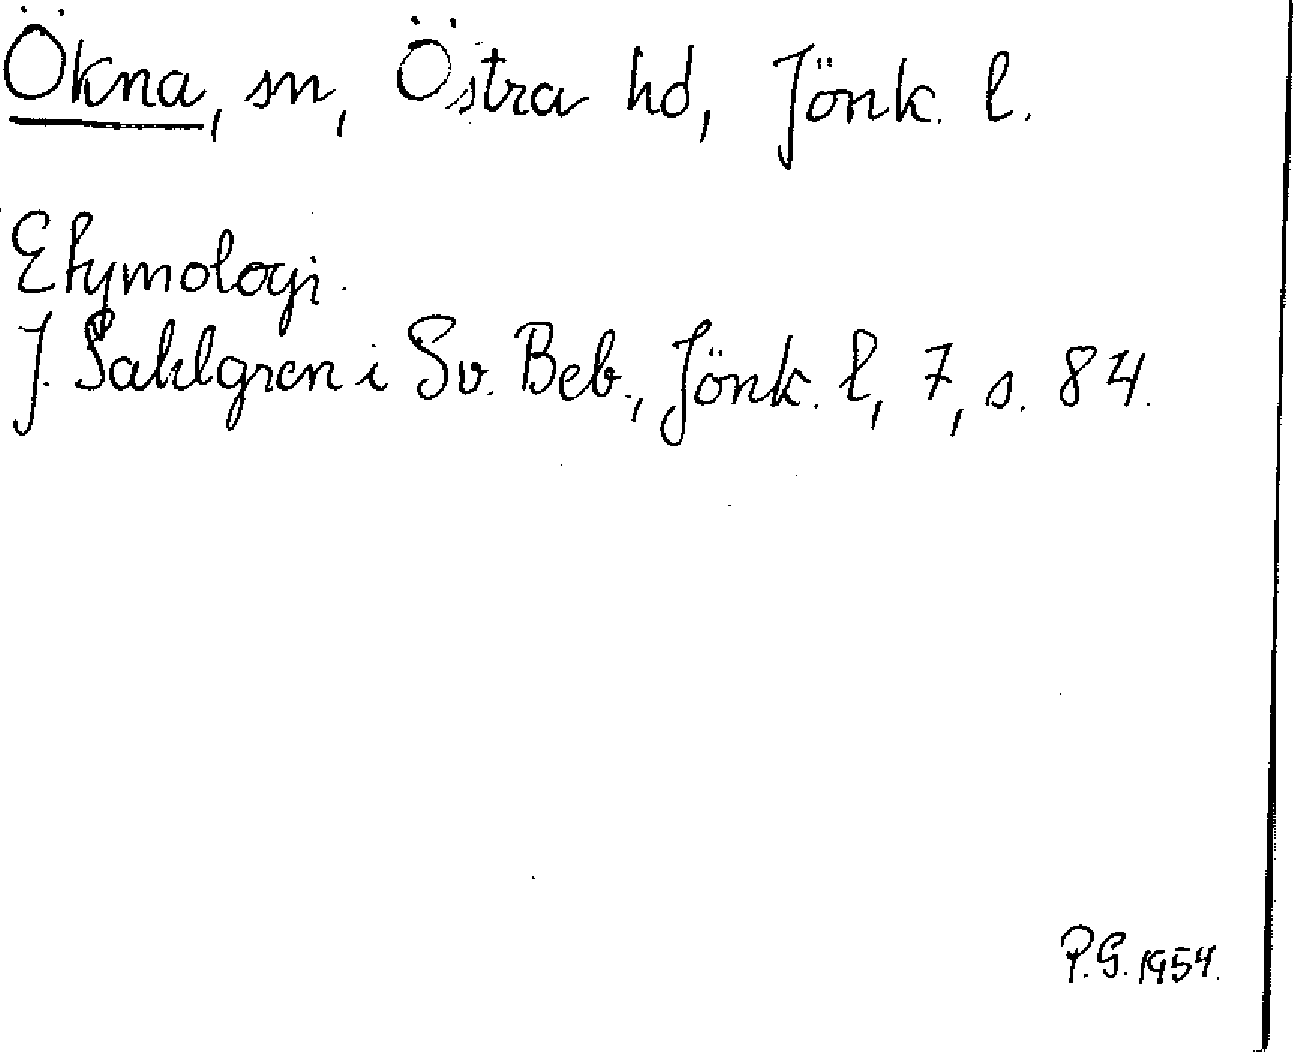 Ökna, sn, Östra hd, Jönk. l.
Etymologi.
J. Sahlgren i Sv. Beb., Jönk. l, 7, s. 84.
P.G. 1954.